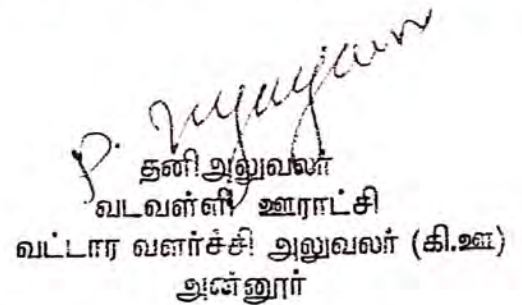 தனி அலுவலர்
வடவள்ளி ஊராட்சி
வட்டார வளர்ச்சி அலுவலர் (கி.ஊ)
அன்னூர்